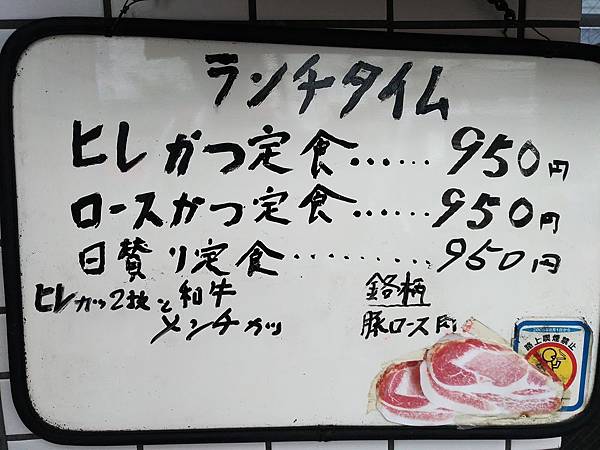 ランチタイム
ヒレかつ定食……950円
ロースかつ定食……950円
日賛り定食………950円
ヒレカツ2枚と和牛
メンチカツ
銘柄
豚ロース肉
路上喫煙禁止